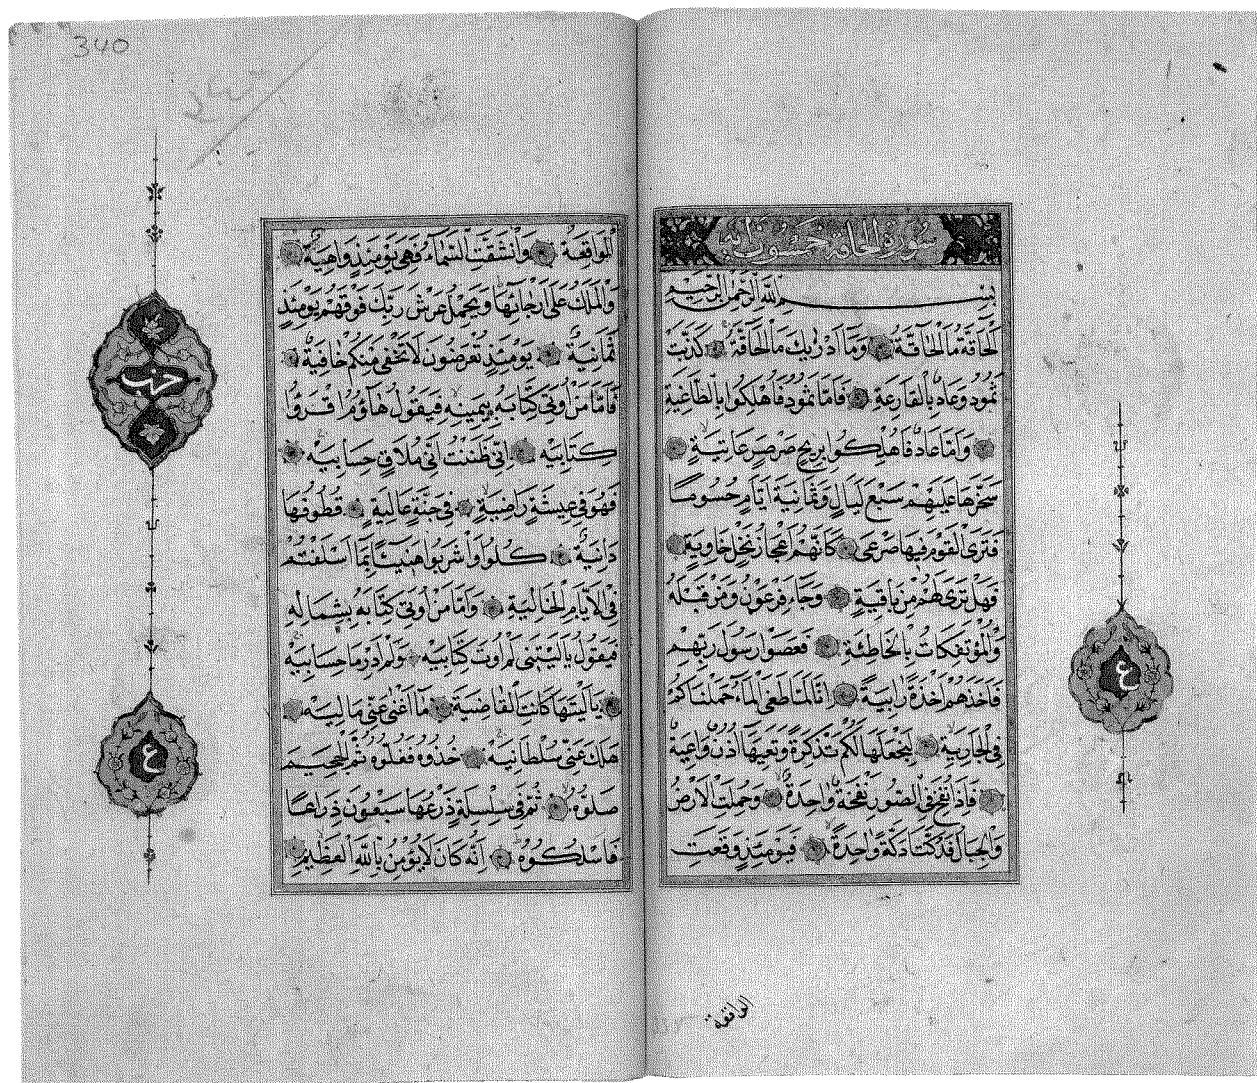 سورة الحاقة خمسون آية
بِسْمِ اللَّهِ الرَّحْمٰنِ الرَّحِيمِ
اَلْحَاقَّةُ مَا الْحَاقَّةُ وَمَا اَدْرٰيكَ مَا الْحَاقَّةُ كَذَّبَتْ
ثَمُودُ وَعَادٌ بِالْقَارِعَةِ فَاَمَّا ثَمُودُ فَاُهْلِكُوا بِالطَّاغِيَةِ
وَاَمَّا عَادٌ فَاُهْلِكُوا بِرِيحٍ صَرْصَرٍ عَاتِيَةٍ
سَخَّرَهَا عَلَيْهِمْ سَبْعَ لَيَالٍ وَثَمَانِيَةَ اَيَّامٍ حُسُومًا
فَتَرَى الْقَوْمَ فِيهَا صَرْعٰى كَاَنَّهُمْ اَعْجَازُ نَخْلٍ خَاوِيَةٍ
فَهَلْ تَرٰى لَهُمْ مِنْ بَاقِيَةٍ وَجَاءَ فِرْعَوْنُ وَمَنْ قَبْلَهُ
وَالْمُؤْتَفِكَاتُ بِالْخَاطِئَةِ فَعَصَوْا رَسُولَ رَبِّهِمْ
فَاَخَذَهُمْ اَخْذَةً رَابِيَةً اِنَّا لَمَّا طَغَى الْمَاءُ حَمَلْنَاكُمْ
فِي الْجَارِيَةِ لِنَجْعَلَهَا لَكُمْ تَذْكِرَةً وَتَعِيَهَا اُذُنٌ وَاعِيَةٌ
فَاِذَا نُفِخَ فِي الصُّورِ نَفْخَةٌ وَاحِدَةٌ وَحُمِلَتِ الْاَرْضُ
وَالْجِبَالُ فَدُكَّتَا دَكَّةً وَاحِدَةً فَيَوْمَئِذٍ وَقَعَتِ
الواقعة
ع
340
الْوَاقِعَةُ وَانْشَقَّتِ السَّمَاءُ فَهِيَ يَوْمَئِذٍ وَاهِيَةٌ
وَالْمَلَكُ عَلٰى اَرْجَائِهَا وَيَحْمِلُ عَرْشَ رَبِّكَ فَوْقَهُمْ يَوْمَئِذٍ
ثَمَانِيَةٌ يَوْمَئِذٍ تُعْرَضُونَ لَا تَخْفٰى مِنْكُمْ خَافِيَةٌ
فَاَمَّا مَنْ اُوتِيَ كِتَابَهُ بِيَمِينِهِ فَيَقُولُ هَاؤُمُ اقْرَؤُا
كِتَابِيَهْ اِنِّي ظَنَنْتُ اَنِّي مُلَاقٍ حِسَابِيَهْ
فَهُوَ فِي عِيشَةٍ رَاضِيَةٍ فِي جَنَّةٍ عَالِيَةٍ قُطُوفُهَا
دَانِيَةٌ كُلُوا وَاشْرَبُوا هَنِيئًا بِمَا اَسْلَفْتُمْ
فِي الْاَيَّامِ الْخَالِيَةِ وَاَمَّا مَنْ اُوتِيَ كِتَابَهُ بِشِمَالِهِ
فَيَقُولُ يَا لَيْتَنِي لَمْ اُوتَ كِتَابِيَهْ وَلَمْ اَدْرِ مَا حِسَابِيَهْ
يَا لَيْتَهَا كَانَتِ الْقَاضِيَةَ مَا اَغْنٰى عَنِّي مَالِيَهْ
هَلَكَ عَنِّي سُلْطَانِيَهْ خُذُوهُ فَغُلُّوهُ ثُمَّ الْجَحِيمَ
صَلُّوهُ ثُمَّ فِي سِلْسِلَةٍ ذَرْعُهَا سَبْعُونَ ذِرَاعًا
فَاسْلُكُوهُ اِنَّهُ كَانَ لَا يُؤْمِنُ بِاللَّهِ الْعَظِيمِ
حزب
ع